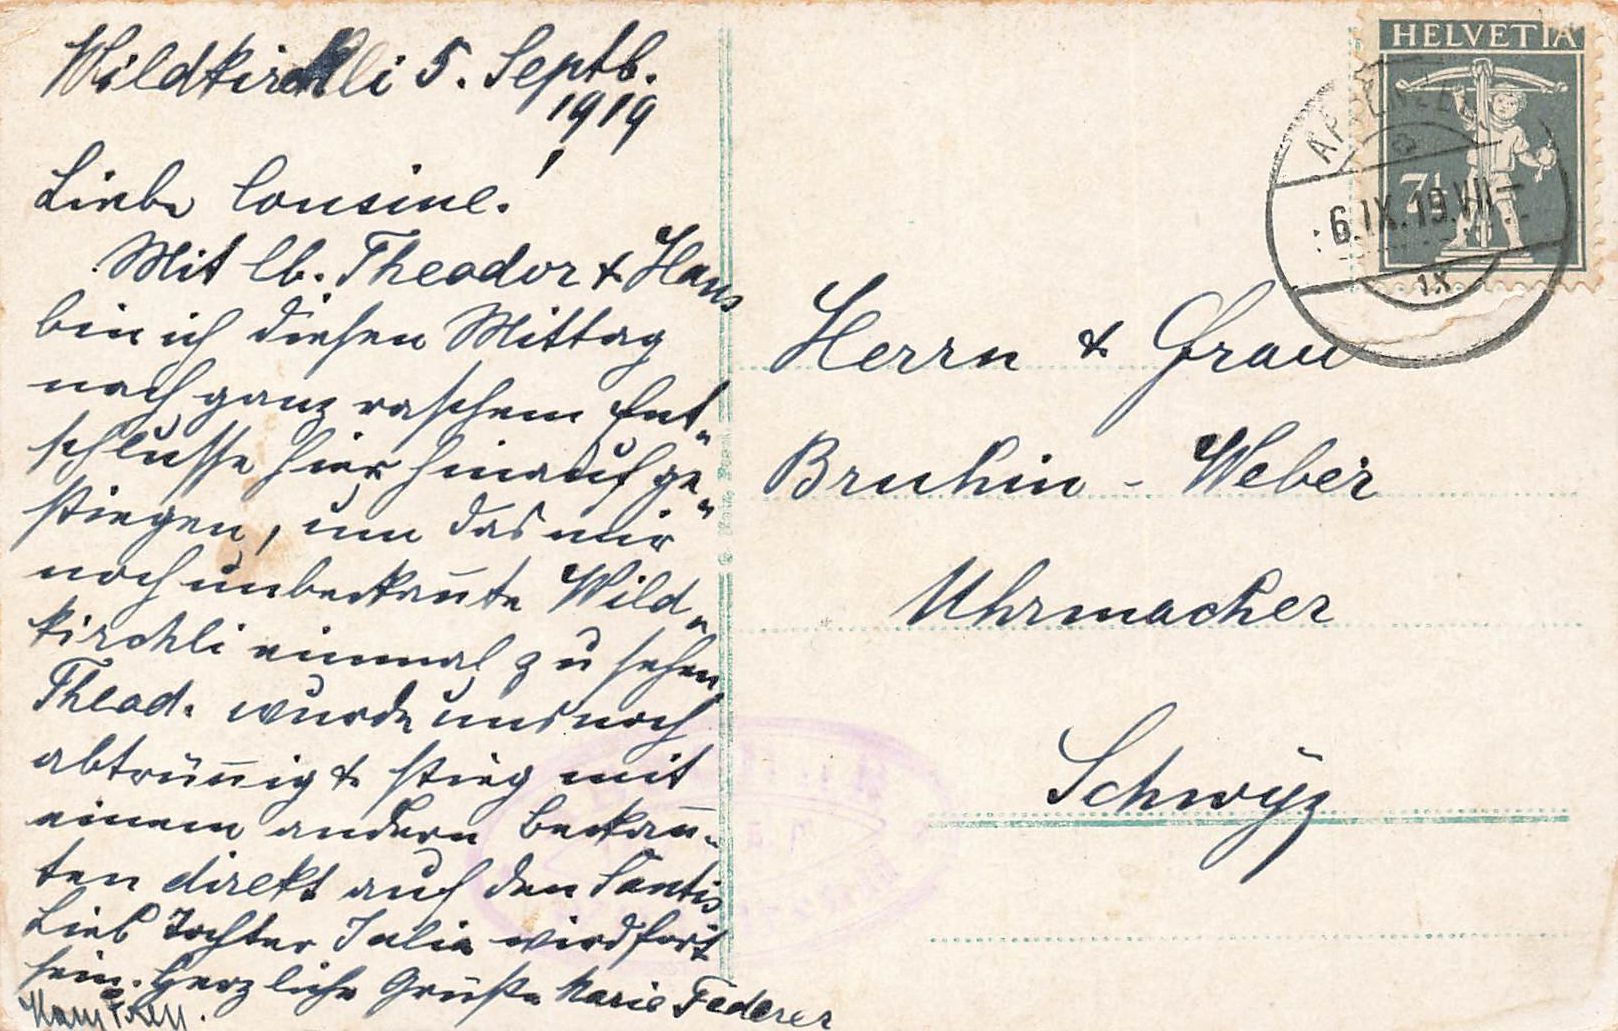 Wildkirchli 5. Septb.
1919
Liebe Cousine!
Mit lb. Theodor & Hans
bin ich diesen Mittag
nach ganz raschem Ent-
schlusse hier hinauf ge-
stiegen, um das mir
noch unbekannte Wild-
kirchli einmal zu sehen.
Theod. wurde uns noch
abtrünnig & stieg mit
einem andern Bekann-
ten direkt auf den Säntis
Lieb Tochter Julia wird fort
sein. Herzliche Grüße Marie Federer
HELVETIA
7½
APPENZELL
6.IX.19.VII
Herrn & Frau
Bruhin - Weber
Uhrmacher
Schwÿz